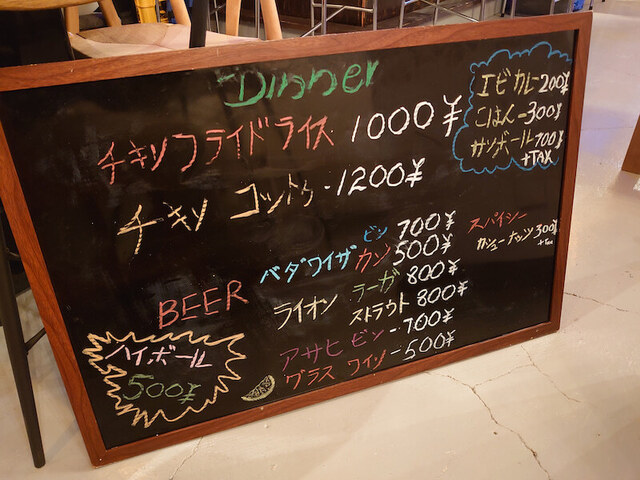 Dinner
チキンフライドライス 1000¥
チキン コットゥ - 1200¥
BEER
バダワイザ ビン 700¥
カン 500¥
ライオン ラーガ 800¥
ストラウト 800¥
アサヒ ビン - 700¥
グラス ワイン - 500¥
ハイボール
500¥
エビカレー 200¥
ごはん - 300¥
サツボール 700¥
+TAX
スパイシー
カシューナッツ 300¥
+Tax